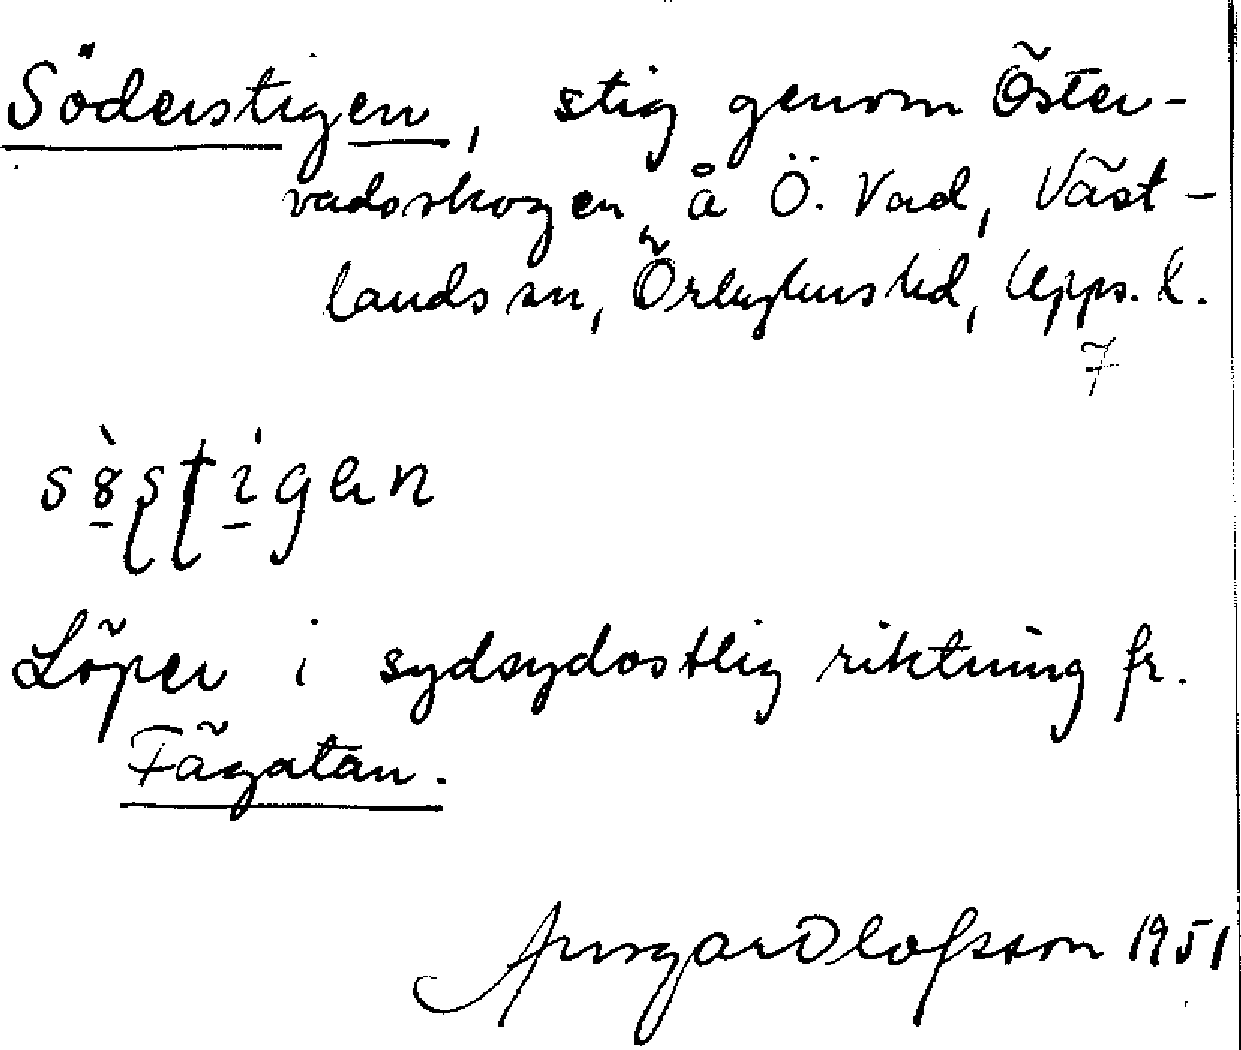 Söderstigen, stig genom Öster-
vadsskogen å Ö. Vad, Väst-
lands sn, Örbyhus hd, Upps. l.
7
Löper i sydsydostlig riktning fr.
Fägatan.
Ansgar Olofsson 1951